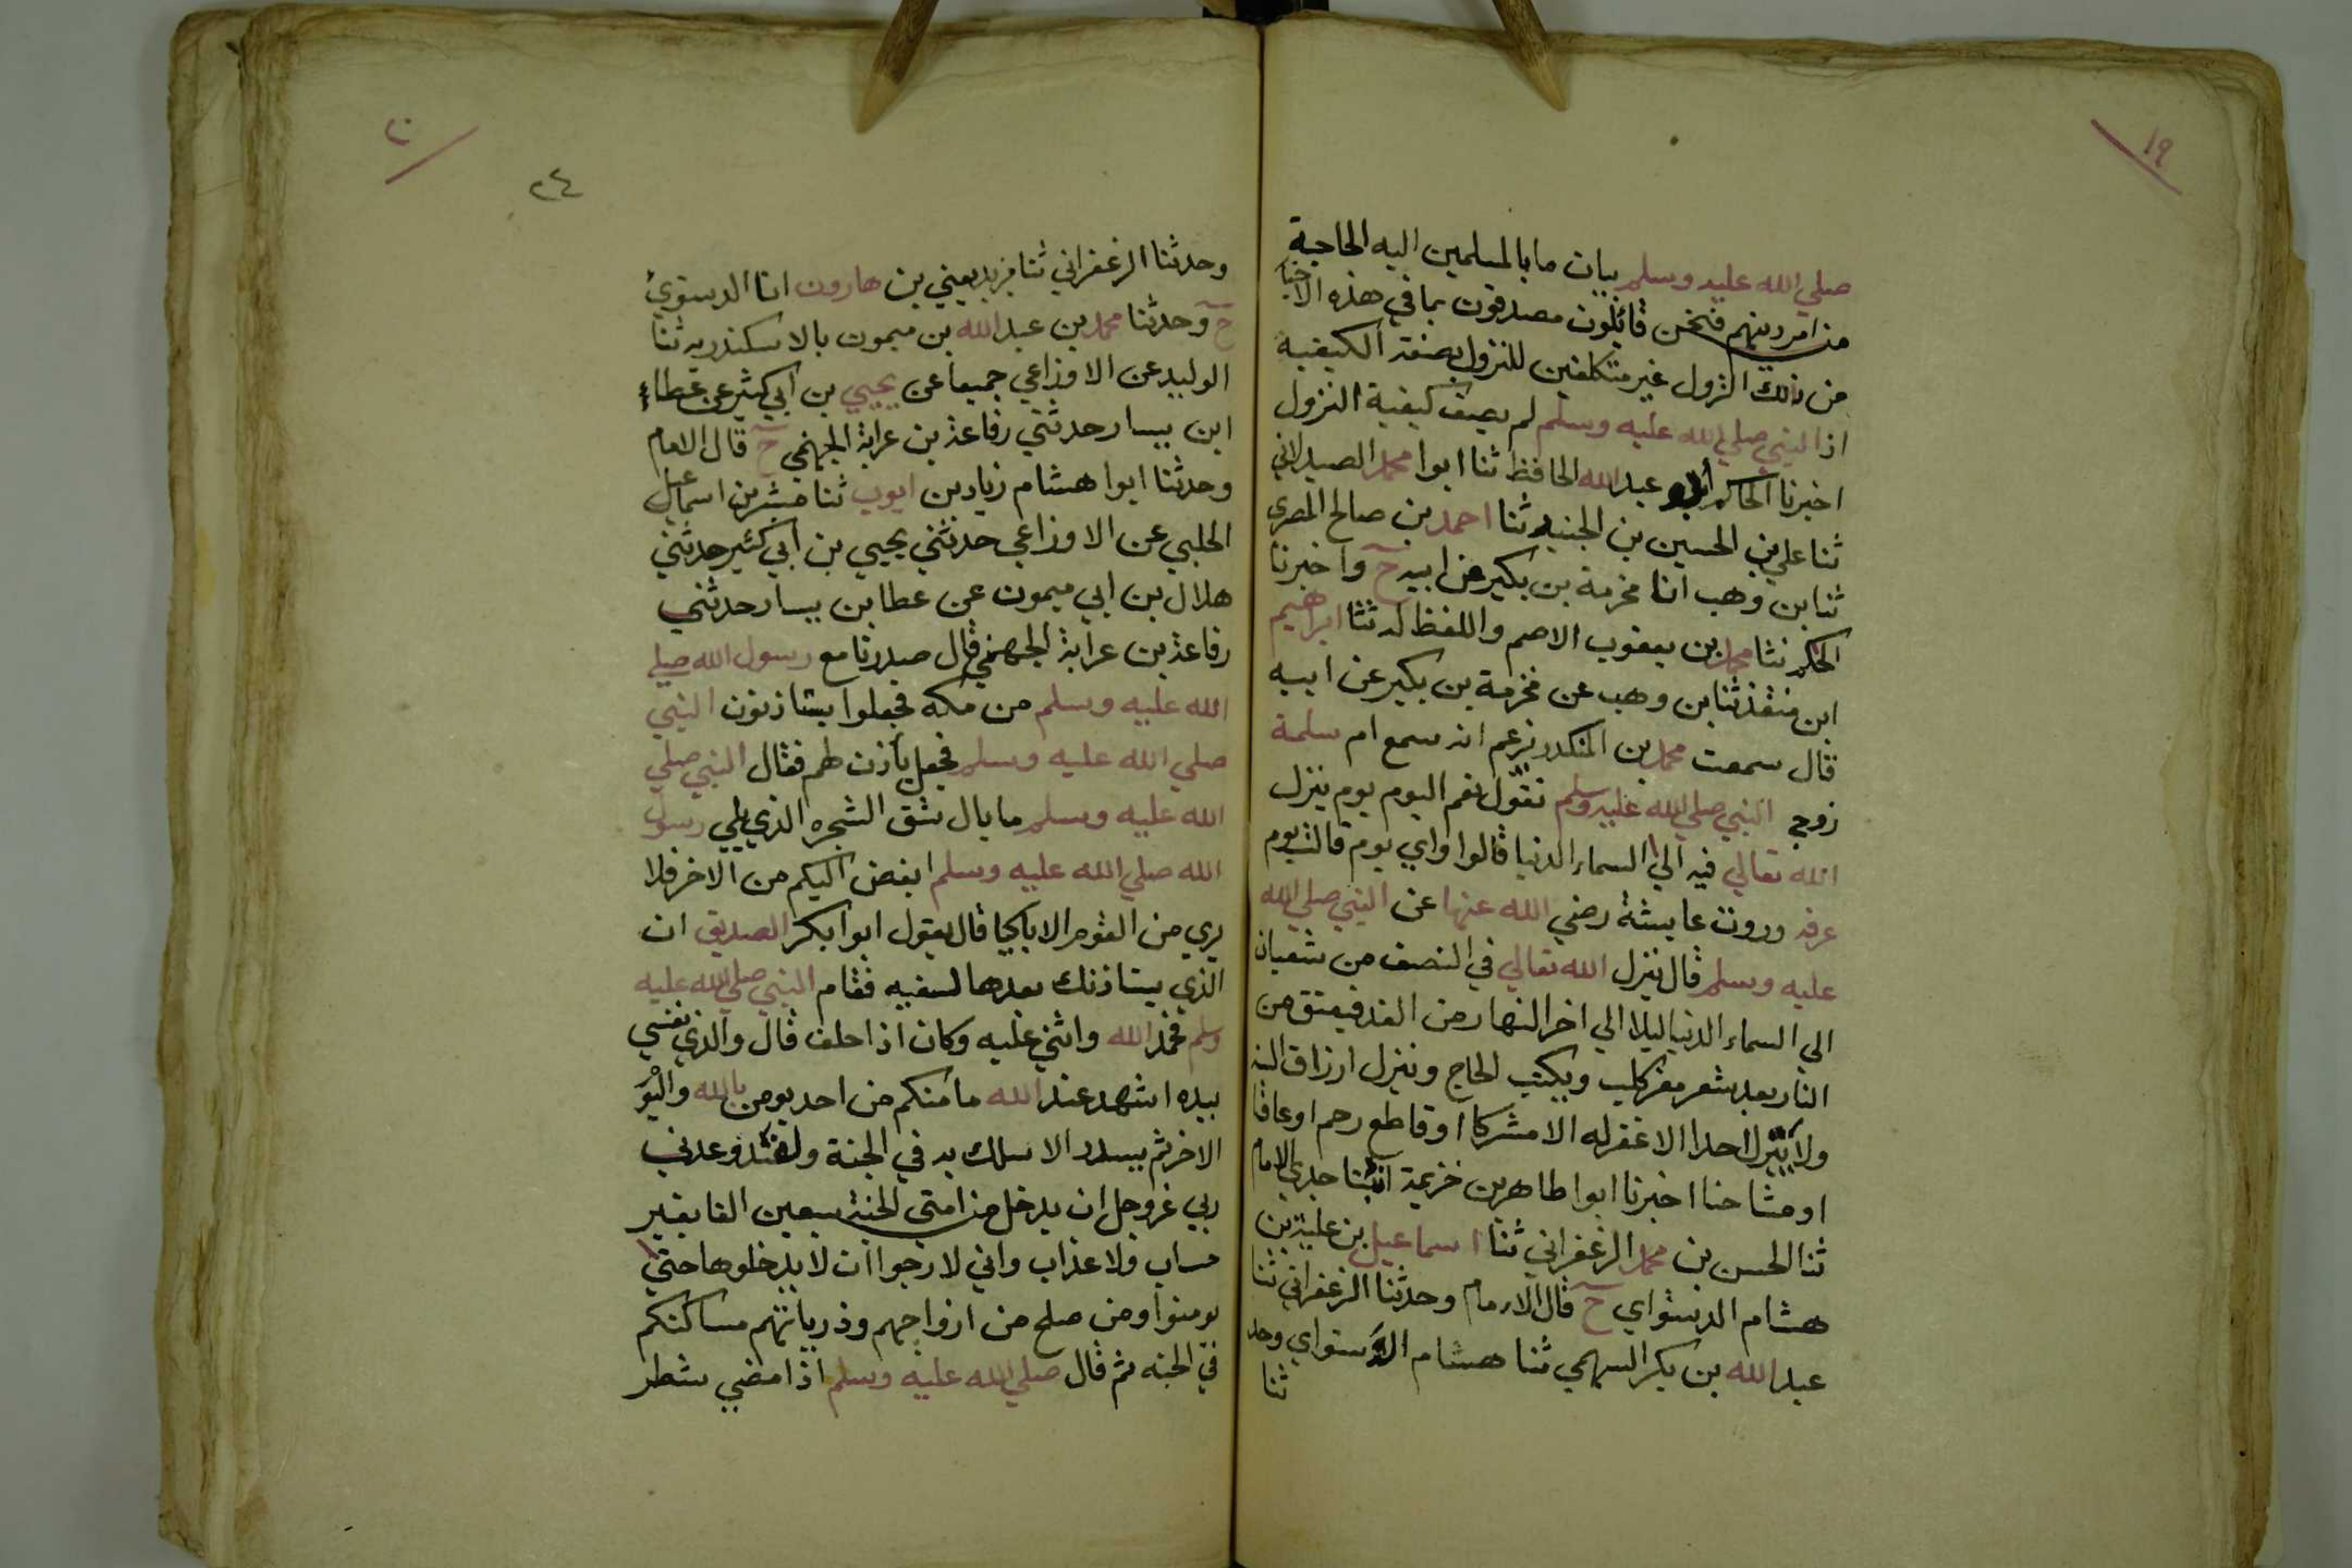 ١٩
صلي الله عليه وسلم بيان مابالمسلمين اليه الحاجة
من امر دينهم فنخن قائلون مصدقون بما في هذه الاخبا
من ذلك النزول غير متكلفين للنزول بصفة الكيفية
اذا النبي صلي الله عليه وسلم لم يصف كيفية النزول
اخبرنا الحاكم أبو عبد الله الحافظ ثنا ابوا محمد الصيدلاني
ثنا علي بن الحسين بن الجنيد ثنا احمد بن صالح المصرى
ثنا بن وهب انا مخرمة بن بكير عن ابيه ح واخبرنا
الحاكم ثنا محمد بن يعقوب الاصم واللفظ له ثنا ابراهيم
ابن منقذ ثنا بن وهب عن مخرمة بن بكير عن ابيه
قال سمعت محمد بن المنكدر يزعم انه سمع ام سلمة
زوج النبي صلي الله عليه وسلم تقول نعم اليوم يوم ينزل
الله تعالي فيه الي السماء الدنيا قالوا واي يوم قالت يوم
عرفه وروت عايشة رضي الله عنها عن النبي صلي الله
عليه وسلم قال ينزل الله تعالي في النصف من شعبان
الي السماء الدنيا ليلا الي اخر النهار من الغد فيعتق من
النار بعدد شعر معز كلب ويكتب الحاج وينزل ارزاق السنة
ولا يترل احدا الا غفر له الا مشركا او قاطع رحم او عاقا
او مشاحنا اخبرنا ابوا طاهر بن خزيمة انبئنا جدي الامام
ثنا الحسن بن محمد الزغفراني ثنا اسماعيل بن علية بن
هشام الدستواي ح قال الامام وحدثنا الزغفراني ثنا
عبد الله بن بكر السهمي ثنا هشام الدستواي وحد
ثنا
٢٠
٢٤
وحدثنا الزغفراني ثنا يزيد يعني بن هارون انا الدستوئ
ح وحدثنا محمد بن عبد الله بن ميمون بالاسكندريه ثنا
الوليد عن الاوزاعي جميعا عن يحيي بن ابي كثير عن عطاء
ابن يسار حدثني رفاعة بن عرابة الجهني ح قال الامام
وحدثنا ابوا هشام زياد بن ايوب ثنا مبشر بن اسماعيل
الحلبي عن الاوزاعي حدثني يحيي بن ابي كثير حدثني
هلال بن ابي ميمون عن عطا بن يسار حدثني
رفاعة بن عرابة الجهني قال صدرنا مع رسول الله صلي
الله عليه وسلم من مكه فجعلوا يستاذنون النبي
صلي الله عليه وسلم فجعل يأذن لهم فقال النبي صلي
الله عليه وسلم ما بال شق الشجره الذي يلي رسول
الله صلي الله عليه وسلم ابغض اليكم من الاخر فلا
يري من القوم الا باكيا قال يقول ابوا بكر الصديق ان
الذي يستاذنك بعدها لسفيه فقام النبي صلي الله عليه
وسلم فحمد الله واثني عليه وكان اذا حلف قال والذي نفسي
بيده اشهد عند الله ما منكم من احد يومن بالله واليو
الاخر ثم يسدد الا سلك به في الجنة ولقد وعدني
ربي عزوجل ان يدخل من امتي الجنة سبعين الفا بغير
حساب ولا عذاب واني لارجوا ان لا يدخلوها حتي
يومنوا ومن صلح من ازواجهم وذرياتهم مساكنكم
في الجنه ثم قال صلي الله عليه وسلم اذا مضي شطر